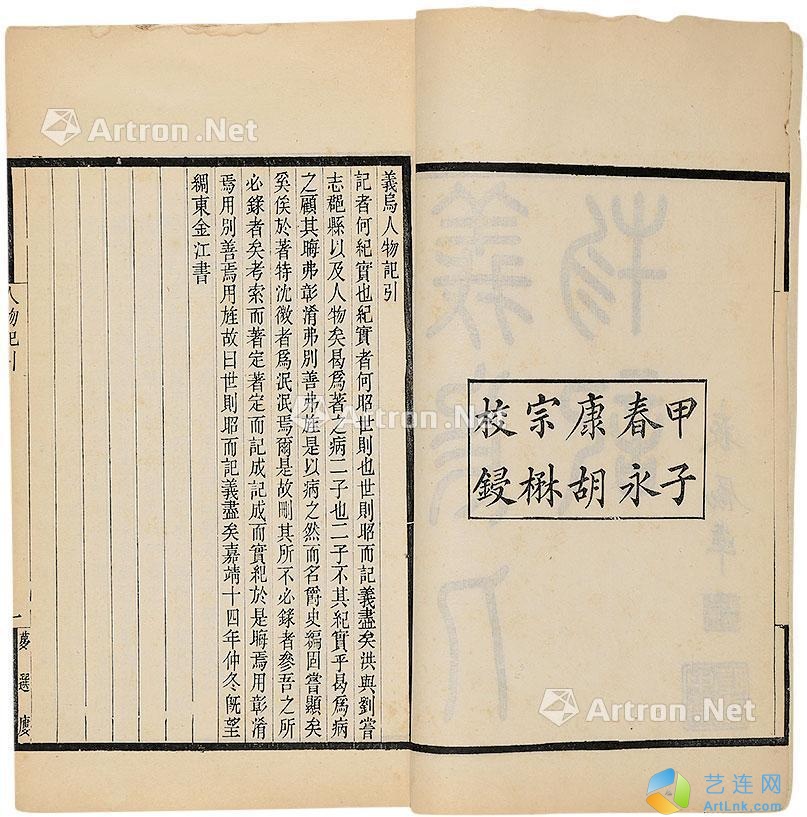 甲子
春永
康胡
宗楙
校鋟
義烏人物記引
記者何紀實也紀實者何昭世則也世則昭而記義盡矣洪與劉嘗
志郡縣以及人物矣曷爲著之病二子也二子不其紀實乎曷爲病
之顧其晦弗彰淆弗別善弗旌是以病之然而名爵史編固嘗顯矣
奚俟於著特沈微者爲泯泯焉爾是故刪其所不必錄者參吾之所
必錄者矣考索而著定著定而記成記成而實紀於是晦焉用彰淆
焉用別善焉用旌故曰世則昭而記義盡矣嘉靖十四年仲冬旣望
稠東金江書
人物記引
一
夢選廔
Artron.Net
Artron.Net
Artron.Net
Artron.Net
艺连网
ArtLnk.com